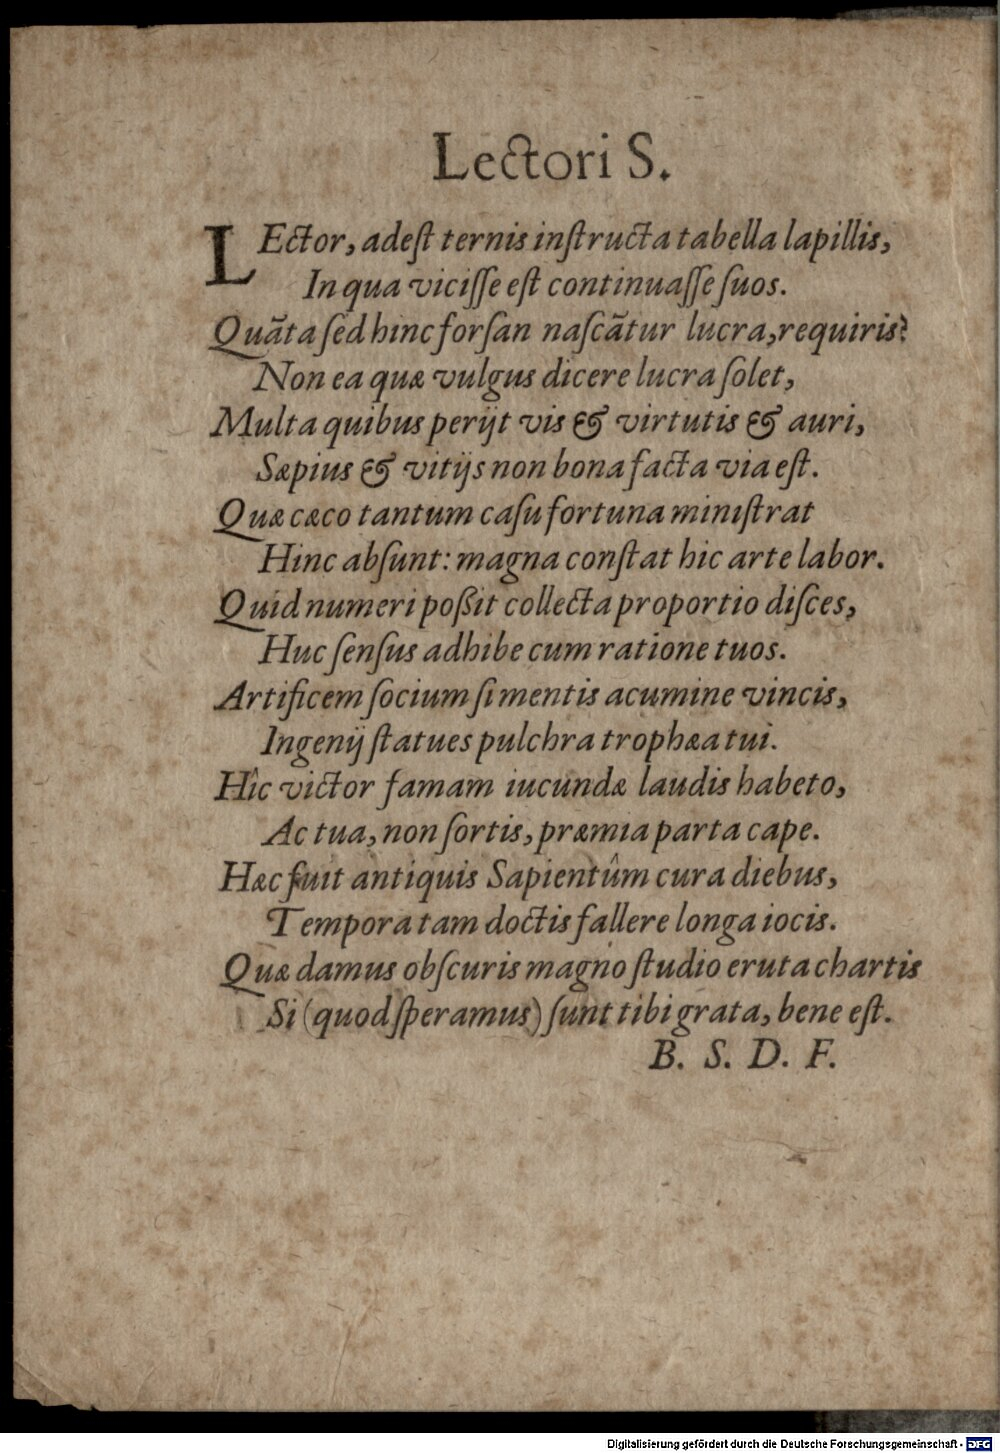 Lectori S.
LEctor, adeſt ternis inſtructa tabella lapillis,
In qua viciſſe eſt continuaſſe ſuos.
Quãta ſed hinc forſan naſcãtur lucra, requiris?
Non ea quæ vulgus dicere lucra ſolet,
Multa quibus perijt vis & virtutis & auri,
Sæpius & vitijs non bona facta via eſt.
Quæ cæco tantum caſu fortuna miniſtrat
Hinc abſunt: magna conſtat hic arte labor.
Quid numeri poßit collecta proportio diſces,
Huc ſenſus adhibe cum ratione tuos.
Artificem ſocium ſi mentis acumine vincis,
Ingenij ſtatues pulchra trophæa tui.
Hîc victor famam iucundæ laudis habeto,
Ac tua, non ſortis, præmia parta cape.
Hæc fuit antiquis Sapientûm cura diebus,
Tempora tam doctis fallere longa iocis.
Quæ damus obſcuris magno ſtudio eruta chartis
Si (quod ſperamus) ſunt tibi grata, bene eſt.
B. S. D. F.
Digitalisierung gefördert durch die Deutsche Forschungsgemeinschaft - DFG